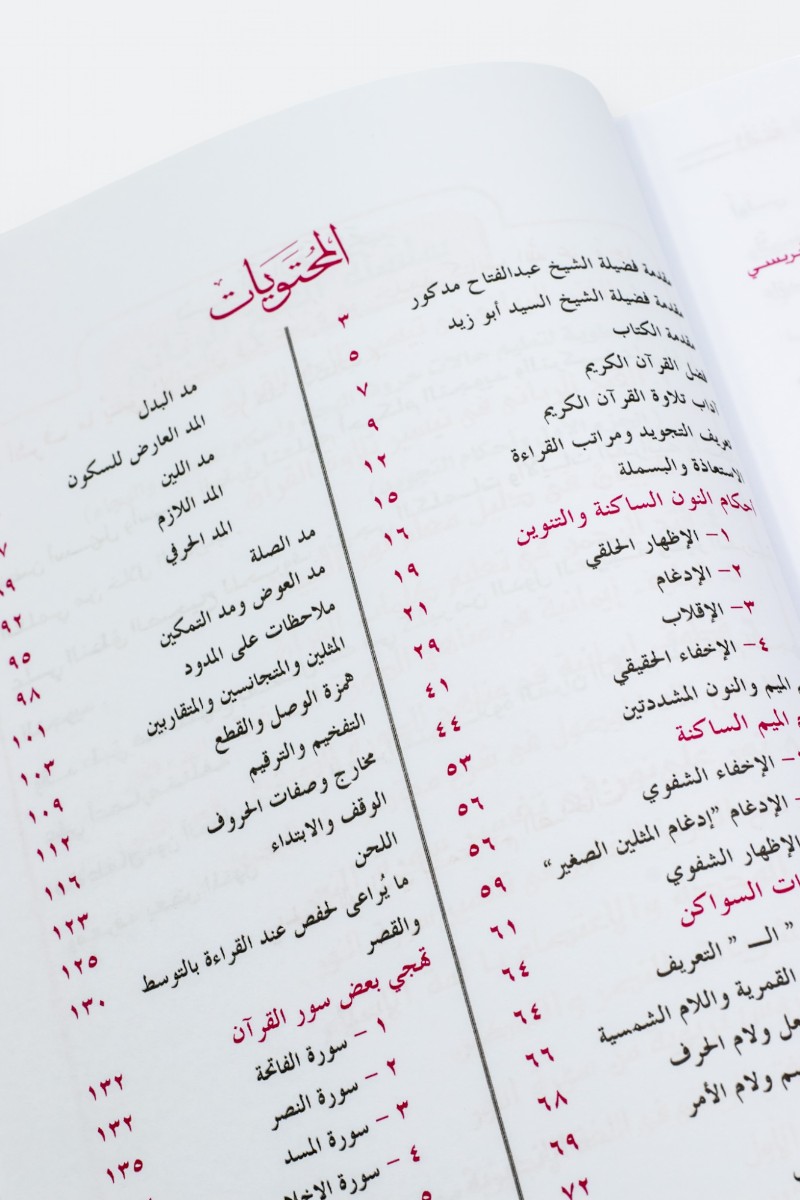 المحتويات
مقدمة فضيلة الشيخ عبدالفتاح مدكور ٣
مقدمة فضيلة الشيخ السيد أبو زيد ٥
مقدمة الكتاب ٧
فضل القرآن الكريم ٩
آداب تلاوة القرآن الكريم ١٢
تعريف التجويد ومراتب القراءة ١٥
الاستعاذة والبسملة ١٦
أحكام النون الساكنة والتنوين ١٩
١- الإظهار الحلقي ٢١
٢- الإدغام ٢٩
٣- الإقلاب ٤١
٤- الإخفاء الحقيقي ٤٤
الميم والنون المشددتين ٥٣
الميم الساكنة ٥٦
- الإخفاء الشفوي ٥٦
- الإدغام "إدغام المثلين الصغير" ٥٩
الإظهار الشفوي ٦١
السواكن ٦٤
" الـ " التعريف ٦٤
القمرية واللام الشمسية ٦٦
ولام الحرف ٦٨
ولام الأمر ٦٩
٧٢
مد البدل
المد العارض للسكون
مد اللين
المد اللازم
المد الحرفي
مد الصلة ٩٢
مد العوض ومد التمكين ٩٥
ملاحظات على المدود ٩٨
المثلين والمتجانسين والمتقاربين ١٠١
همزة الوصل والقطع ١٠٣
التفخيم والترقيم ١٠٩
مخارج وصفات الحروف ١١٢
الوقف والابتداء ١١٦
اللحن ١٢٣
ما يُراعى لحفص عند القراءة بالتوسط ١٢٥
والقصر ١٣٠
تهجي بعض سور القرآن
١ - سورة الفاتحة ١٣٢
٢ - سورة النصر ١٣٢
٣ - سورة المسد ١٣٥
٤ - سورة